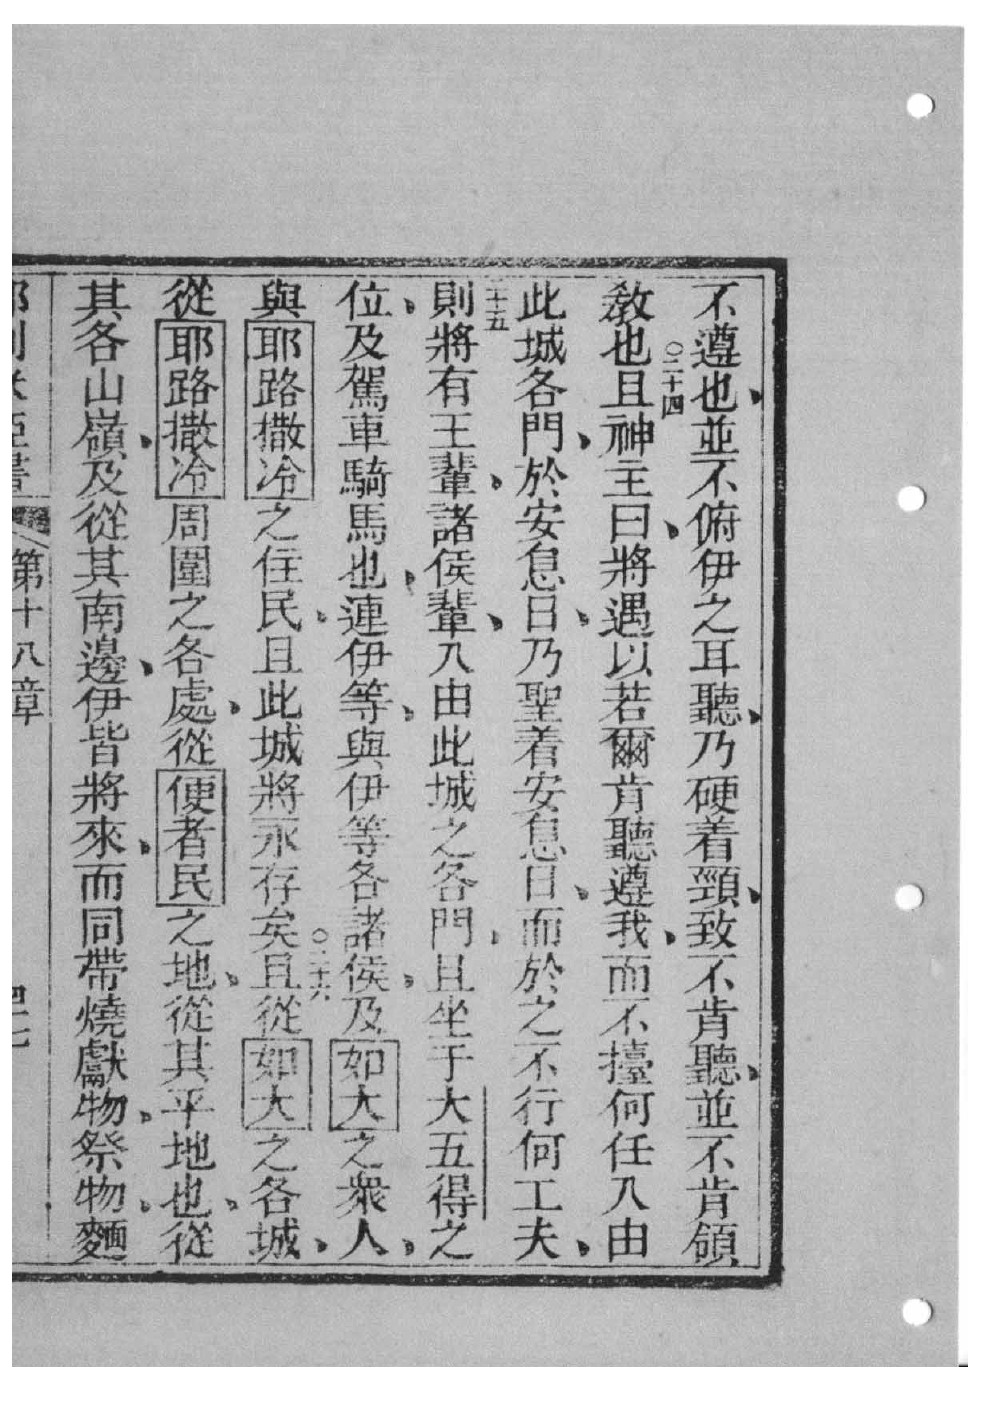 不遵也、並不俯伊之耳聽、乃硬着頸、致不肯聽、並不肯領
教也○二十四且神主曰、將遇以若爾肯聽遵我、而不擡何任入由
此城各門、於安息日、乃聖着安息日、而於之不行何工夫、
二十五則將有王輩、諸侯輩、入由此城之各門、且坐于大五得之
位、及駕車騎馬也、連伊等、與伊等各諸侯、及如大之衆人、
與耶路撒冷之住民、且此城將永存矣○二十六且從如大之各城、
從耶路撒冷周圍之各處、從便者民之地、從其平地也、從
其各山嶺、及從其南邊、伊皆將來、而同帶燒獻物、祭物、麵
第十八章